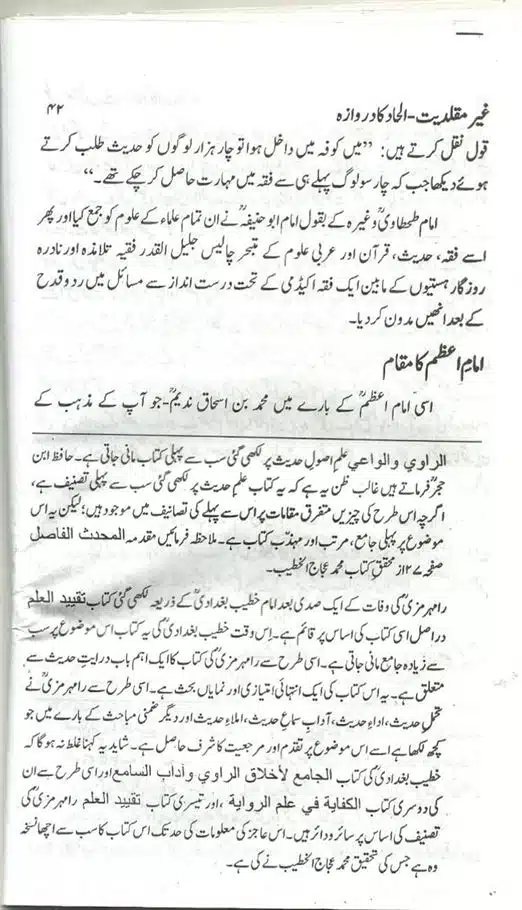 غیر مقلدیت-الحاد کا دروازہ ۴۲
قول نقل کرتے ہیں: ”میں کوفہ میں داخل ہوا تو چار ہزار لوگوں کو حدیث طلب کرتے
ہوئے دیکھا جب کہ چار سو لوگ پہلے ہی سے فقہ میں مہارت حاصل کر چکے تھے۔“
امام طحطاویؒ وغیرہ کے بقول امام ابو حنیفہؒ نے ان تمام علماء کے علوم کو جمع کیا اور پھر
اسے فقہ، حدیث، قرآن اور عربی علوم کے متبحر چالیس جلیل القدر فقیہ تلامذہ اور نادرہ
روزگار ہستیوں کے مابین ایک فقہ اکیڈمی کے تحت درست انداز سے مسائل میں رد و قدح
کے بعد انھیں مدون کر دیا۔
امام اعظم کا مقام
اسی امام اعظمؒ کے بارے میں محمد بن اسحاق ندیمؒ-جو آپ کے مذہب کے
الراوي والواعي علم اصول حدیث پر لکھی گئی سب سے پہلی کتاب مانی جاتی ہے۔ حافظ ابن
حجرؒ فرماتے ہیں غالب ظن یہ ہے کہ یہ کتاب علم حدیث پر لکھی گئی سب سے پہلی تصنیف ہے،
اگرچہ اس طرح کی چیزیں متفرق مقامات پر اس سے پہلے کی تصانیف میں موجود ہیں؛ لیکن یہ اس
موضوع پر پہلی جامع، مرتب اور مہذب کتاب ہے۔ ملاحظہ فرمائیں مقدمہ المحدث الفاصل
صفحہ ۲۷ از محقق کتاب محمد عجاج الخطیب۔
رامہرمزیؒ کی وفات کے ایک صدی بعد امام خطیب بغدادیؒ کے ذریعہ لکھی گئی کتاب تقييد العلم
در اصل اسی کتاب کی اساس پر قائم ہے۔ اِس وقت خطیب بغدادیؒ کی یہ کتاب اس موضوع پر سب
سے زیادہ جامع مانی جاتی ہے۔ اسی طرح سے رامہرمزیؒ کی کتاب کا ایک اہم باب درایتِ حدیث سے
متعلق ہے۔ یہ اس کتاب کی ایک انتہائی امتیازی اور نمایاں بحث ہے۔ اسی طرح سے رامہرمزیؒ نے
تحمل حدیث، اداءِ حدیث، آدابِ سماعِ حدیث، املاءِ حدیث اور دیگر ضمنی مباحث کے بارے میں جو
کچھ لکھا ہے اسے اس موضوع پر تقدم اور مرجعیت کا شرف حاصل ہے۔ شاید یہ کہنا غلط نہ ہوگا کہ
خطیب بغدادیؒ کی کتاب الجامع لأخلاق الراوي وآداب السامع اور اسی طرح سے ان
کی دوسری کتاب الكفاية في علم الرواية، اور تیسری کتاب تقييد العلم رامہرمزیؒ کی
تصنیف کی اساس پر سائر و دائر ہیں۔ اس عاجز کی معلومات کی حد تک اس کتاب کا سب سے اچھا نسخہ
وہ ہے جس کی تحقیق محمد عجاج الخطیب نے کی ہے۔